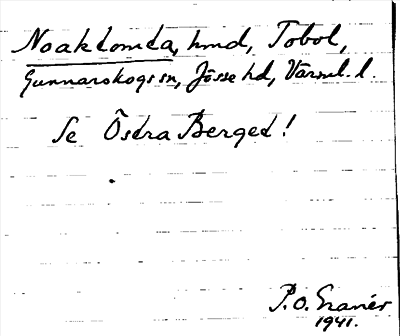 Noaktomta, hmd, Tobol,
Gunnarskogs sn, Jösse hd, Värml. l.
Se Östra Berget!
P.O. Granér
1941.